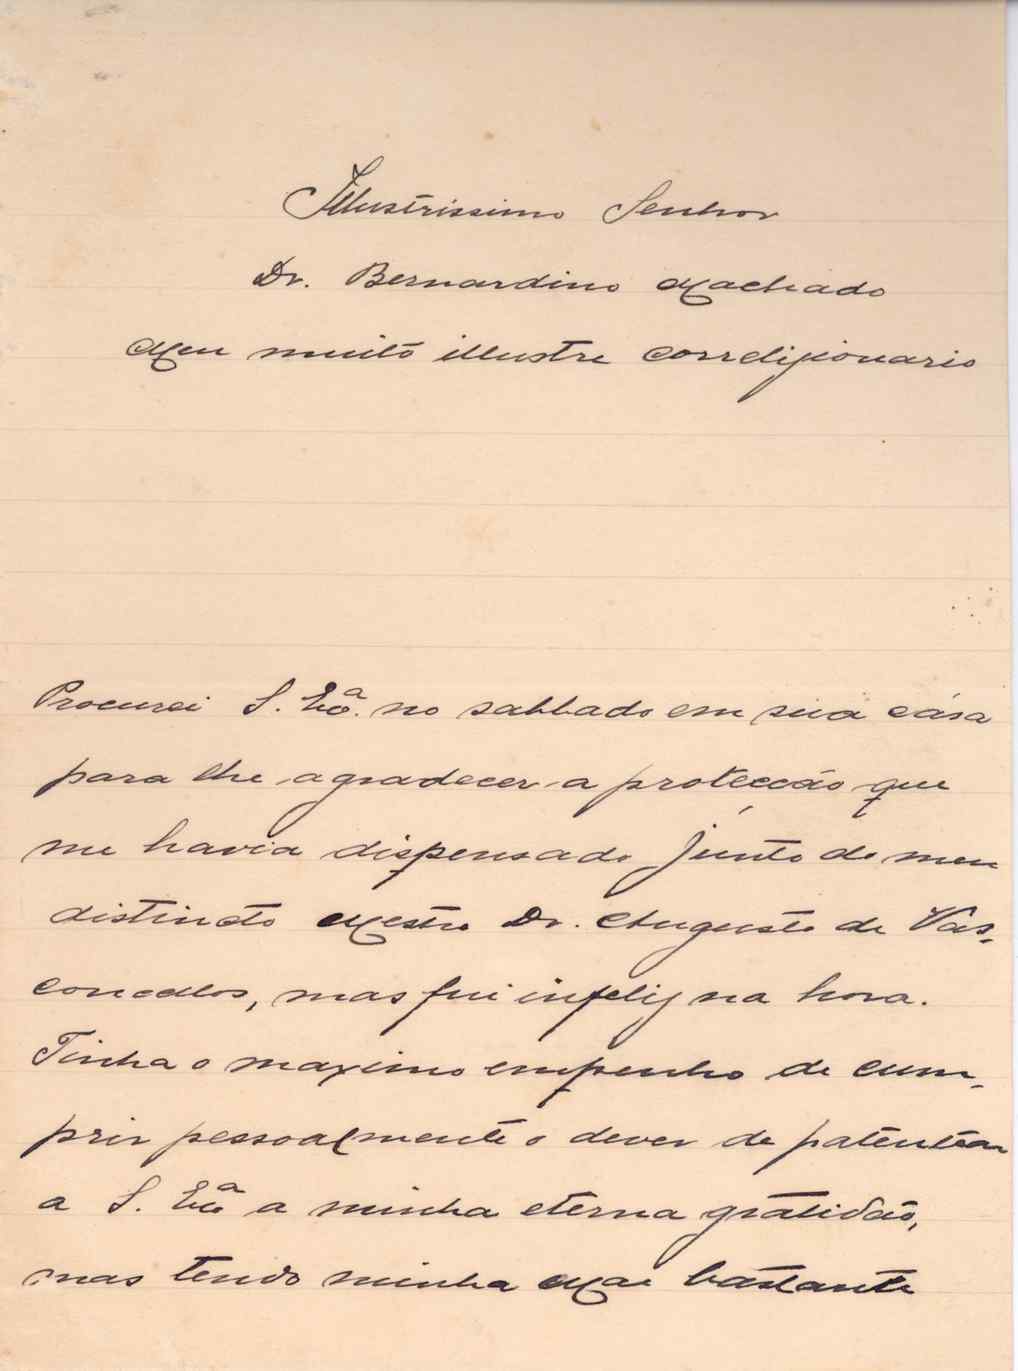 Illustrissimo Senhor
Dr. Bernardino Machado
Meu muito illustre correligionario
Procurei S. Exª. no sabbado em sua cása
para lhe agradecer a protecção que
me havia dispensado junto do meu
distincto Mestre Dr. Augusto de Vas-
concellos, mas fui infeliz na hora.
Tinha o maximo empenho de cum-
prir pessoalmente o dever de patentear
a S. Exª a minha eterna gratidão,
mas tendo minha Mae bastante